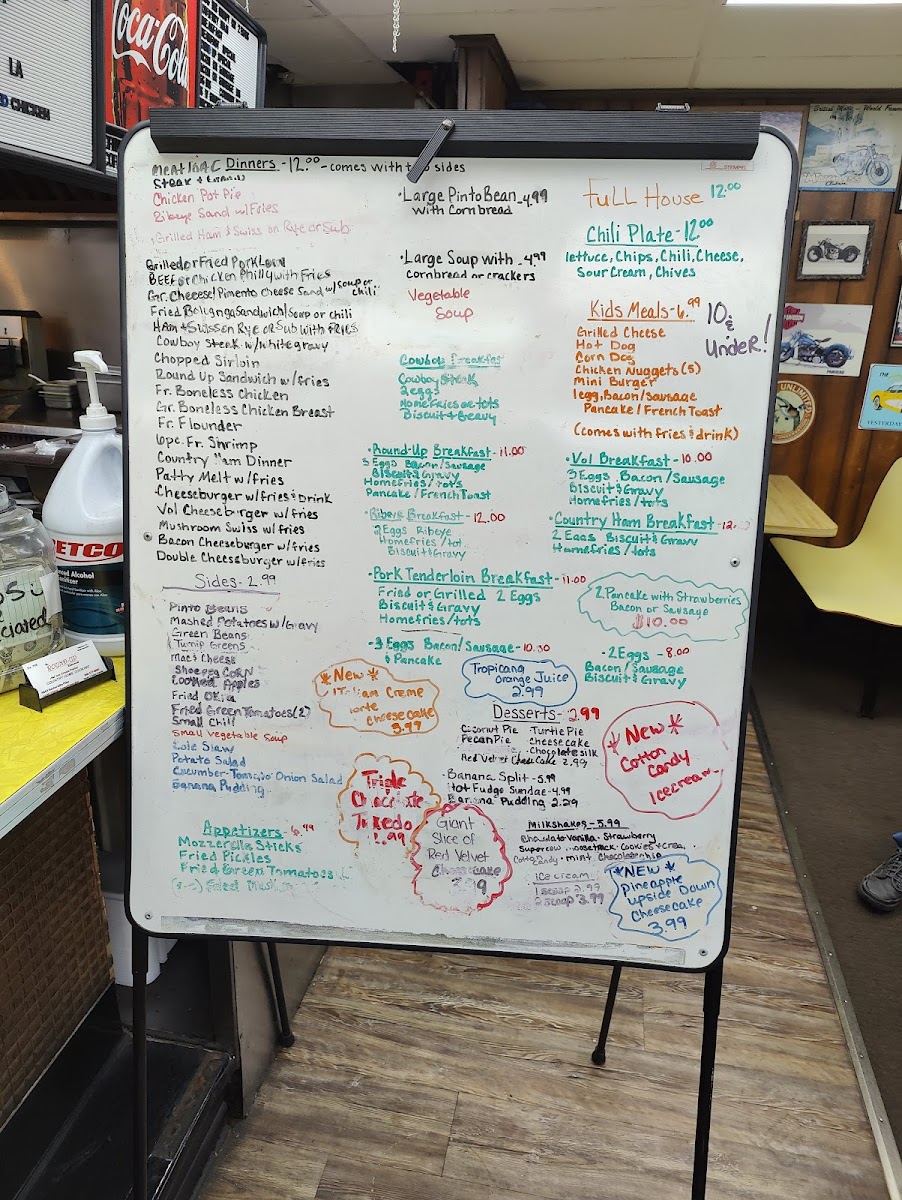 LA
CHICKEN
Coca-Cola
Dinners - 12.00 - comes with two sides
Steak &
Chicken Pot Pie
Ribeye Sand w/Fries
Grilled Ham & Swiss on Rye or Sub
Grilled or Fried Pork Loin
BEEF or Chicken Philly with Fries
Gr. Cheese/Pimento Cheese Sand w/soup or chili
Fried Bologna Sandwich/Soup or chili
HAM & Swiss on Rye or Sub with FRIES
Cowboy Steak w/white gravy
Chopped Sirloin
Round Up Sandwich w/fries
Fr. Boneless Chicken
Gr. Boneless Chicken Breast
Fr. Flounder
6pc. Fr. Shrimp
Country Ham Dinner
Patty Melt w/fries
Cheeseburger w/fries & Drink
Vol Cheeseburger w/fries
Mushroom Swiss w/fries
Bacon Cheeseburger w/fries
Double Cheeseburger w/fries
Sides - 2.99
Pinto Beans
Mashed Potatoes w/Gravy
Green Beans
Turnip Greens
Mac & Cheese
Shoepeg CORN
Cooked Apples
Fried Okra
Fried Green Tomatoes (2)
Small Chili
Small Vegetable Soup
Cole Slaw
Potato Salad
Cucumber-Tomato Onion Salad
Banana Pudding
Appetizers - 6.99
Mozzerella Sticks
Fried Pickles
Fried Green Tomatoes
• Large Pinto Bean - 4.99
with Cornbread
• Large Soup with - 4.99
cornbread or crackers
Vegetable
Soup
Cowboy Breakfast
Cowboy Steak
2 eggs
Homefries or tots
Biscuit & Gravy
• Round-Up Breakfast - 11.00
3 Eggs Bacon/Sausage
Biscuit & Gravy
Homefries/tots
Pancake/French Toast
• Ribeye Breakfast - 12.00
2 Eggs Ribeye
Homefries/tot
Biscuit & Gravy
• Pork Tenderloin Breakfast - 11.00
Fried or Grilled 2 Eggs
Biscuit & Gravy
Homefries/tots
• 3 Eggs Bacon/Sausage - 10.50
& Pancake
Full House 12.00
Chili Plate - 12.00
lettuce, Chips, Chili, Cheese,
Sour Cream, Chives
Kids Meals - 6.99 10 & Under!
Grilled Cheese
Hot Dog
Corn Dog
Chicken Nuggets (5)
Mini Burger
1 egg, Bacon/Sausage
Pancake/French Toast
(comes with fries & drink)
• Vol Breakfast - 10.00
3 Eggs Bacon/Sausage
Biscuit & Gravy
Homefries/tots
• Country Ham Breakfast - 12.
2 Eggs Biscuit & Gravy
Homefries/tots
2 Pancake with Strawberries
Bacon or Sausage
$10.00
• 2 Eggs - 8.00
Bacon/Sausage
Biscuit & Gravy
*New*
Italian Creme
Torte
Cheesecake
3.99
Tropicana
Orange Juice
2.99
Triple
Chocolate
Tuxedo
Giant
Slice of
Red Velvet
Cheesecake
Desserts - 2.99
Coconut Pie • Turtle Pie
Pecan Pie • Cheesecake
• Chocolate silk
Red Velvet Cheesecake 3.99
• Banana Split - 5.99
Hot Fudge Sundae - 4.99
Banana Pudding 2.29
Milkshakes - 5.99
Chocolate • Vanilla • Strawberry
Supercow • Moosetrack • Cookies & Cream
Cotton Candy • Mint Chocolate chip
Ice cream
1 scoop 2.99
2 scoop 3.99
*New*
Cotton
Candy
Icecream
*NEW*
Pineapple
Upside Down
Cheesecake
3.99
ETCO
Alcohol
YESTERDAY